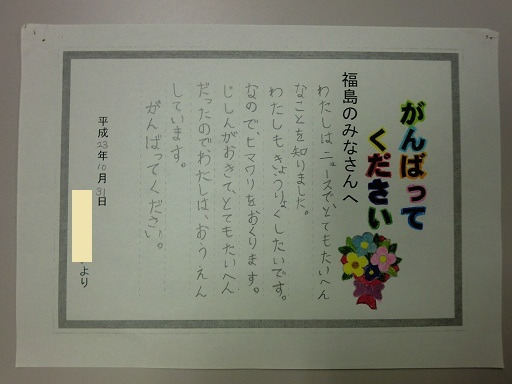 がんばって
ください
福島のみなさんへ
わたしは、ニュースで、とてもたいへん
なことを知りました。
わたしもきょうりょくしたいです。
なので、ヒマワリをおくります。
じしんがおきて、とてもたいへん
だったのでわたしは、おうえん
しています。
がんばってください。
平成23年10月31日
より